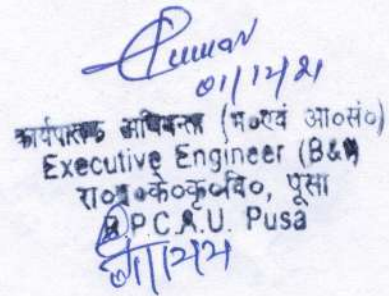 01/12/21
कार्यपालक अभियन्ता (भ०एवं आ०सं०)
Executive Engineer (B&W
रा०प्र०के०कृ०वि०, पूसा
R.P.C.A.U. Pusa